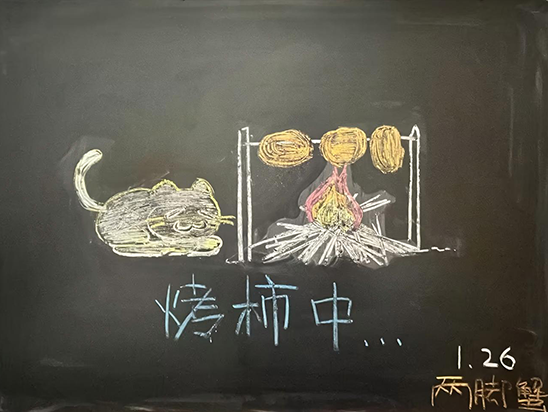 烤柿中...
1.26
两脚蟹